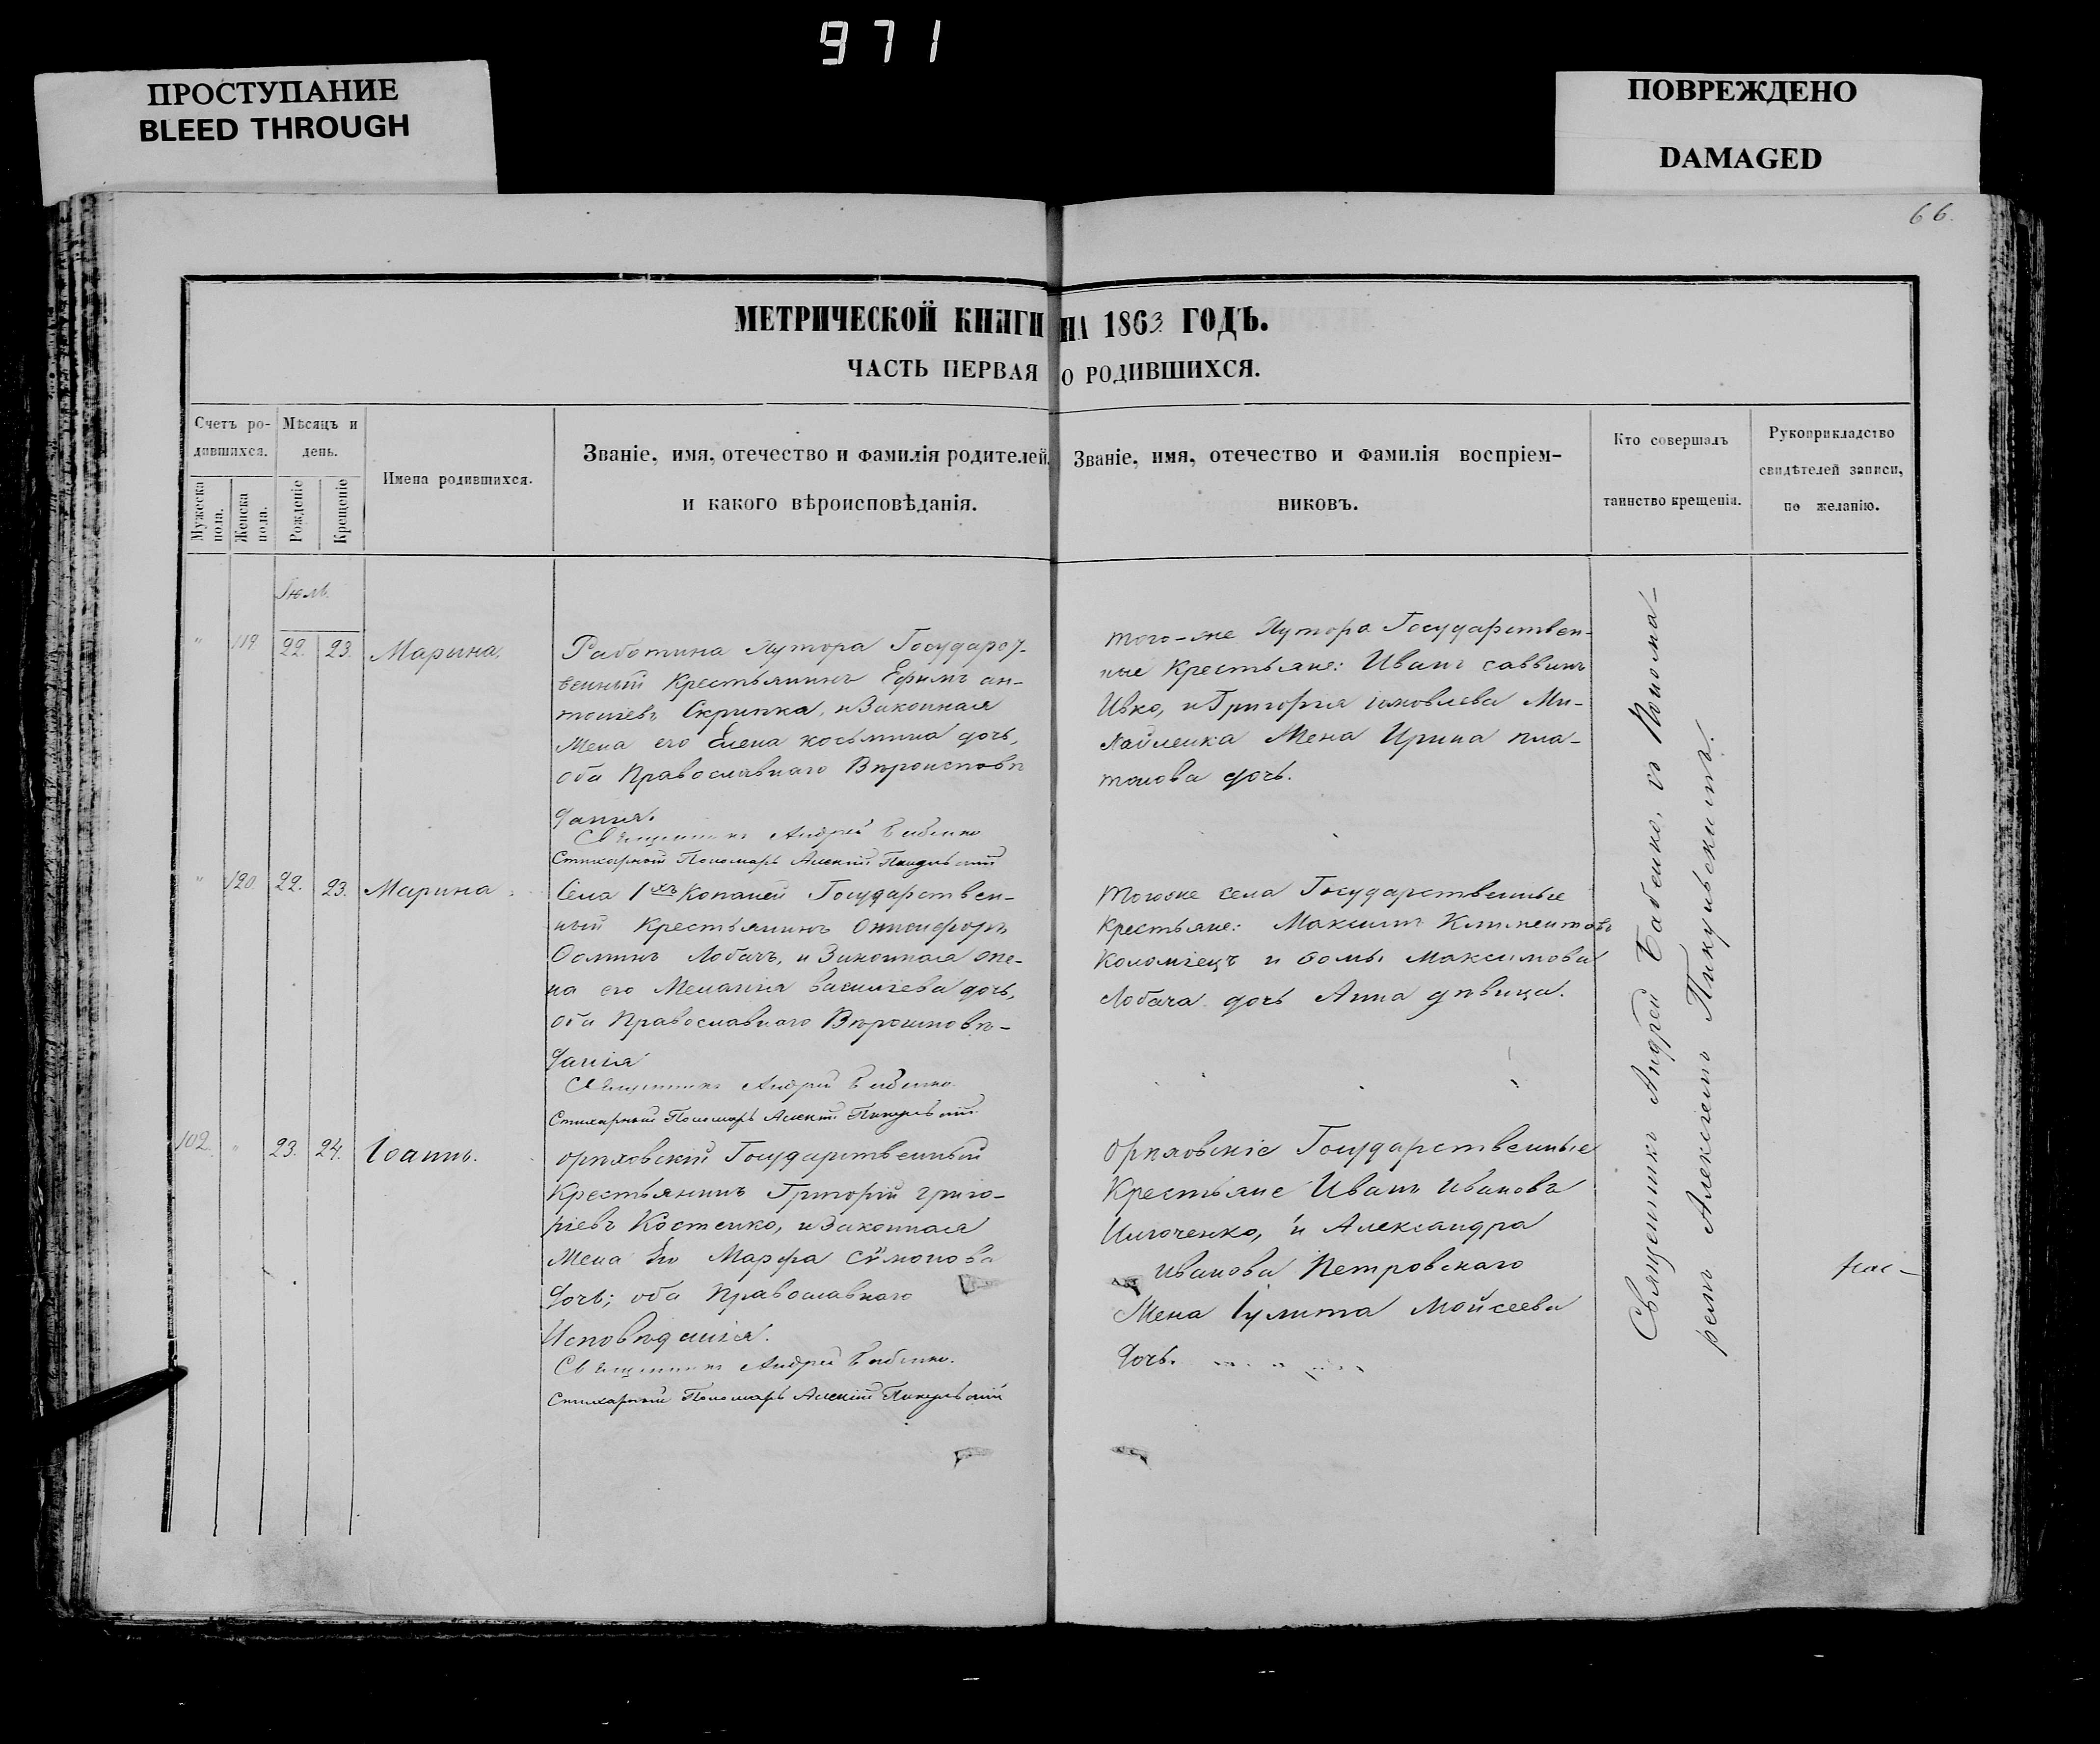 971
ПРОСТУПАНИЕ
BLEED THROUGH
ПОВРЕЖДЕНО
DAMAGED
66.
МЕТРИЧЕСКОЙ КНИГИ НА 1863 ГОДЪ.
ЧАСТЬ ПЕРВАЯ О РОДИВШИХСЯ.
Счетъ ро-
дившихся.
Мужеска пола.
Женска пола.
Мѣсяцъ и
день.
Рожденіе
Крещеніе
Имена родившихся.
Званіе, имя, отечество и фамилія родителей,
и какого вѣроисповѣданія.
Званіе, имя, отечество и фамилія воспріем-
никовъ.
Кто совершалъ
таинство крещенія.
Рукоприкладство
свидѣтелей записи,
по желанію.
Іюль
" 119. 22. 23. Марына,
Работина Хутора Государст-
венный Крестьянинъ Ефимъ ан-
тоніевъ Скрипка, и Законная
Жена его Елена косьмина дочь,
оба Православнаго Вѣроисповѣ
данія.
Священникъ Андрей Бабенко
Стихарный Пономарь Алексій Пикульскій
того-же Хутора Государствен-
ные Крестьяне: Иванъ саввинъ
Ивко, и Григорія іаковлева Ми-
хайленка Жена Ирина пла-
тонова дочь.
" 120. 22. 23. Марина
Села 1хъ Копаней Государствен-
ный Крестьянинъ Онисифоръ
Ѳоминъ Лобачъ, и Законная Же-
на его Меланія васильева дочь,
оба Православнаго Вѣроисповѣ-
данія
Священникъ Андрей Бабенко.
Стихарный Пономарь Алексій Пикульскій
Тогоже села Государственные
Крестьяне: Максимъ Климентовъ
Коломіецъ и Ѳомы Максимова
Лобача дочь Анна дѣвица.
102. " 23. 24. Іоаннъ.
орѣховскій Государственный
Крестьянинъ Григорій григо-
ріевъ Костенко, и Законная
Жена Его Марфа Сѵмонова
дочь; оба Православнаго
Исповѣданія.
Священникъ Андрей Бабенко.
Стихарный Пономарь Алексій Пикульскій
Орѣховскіе Государственные
Крестьяне Иванъ Ивановъ
и Александра
Иванова Петровскаго
Жена Іулита Мойсеева
дочь.
Священникъ Андрей Бабенко, съ Понома-
ремъ Алексіемъ Пикульскимъ.